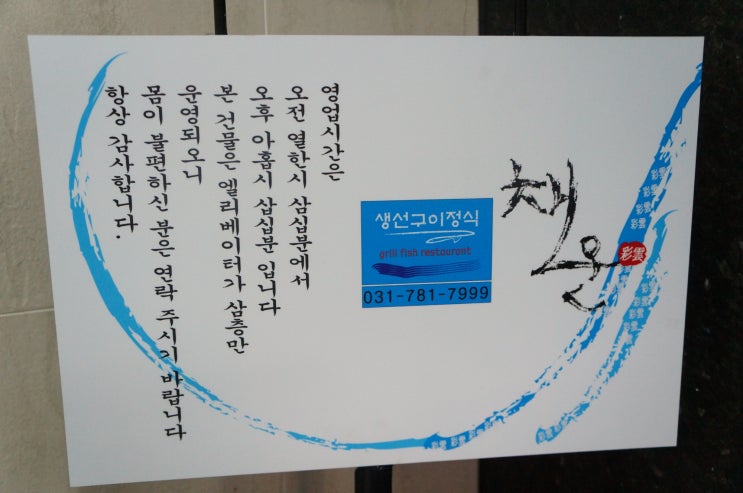 채운
彩雲
생선구이정식
grill fish restaurant
031-781-7999
영업시간은
오전 열한시 삼십분에서
오후 아홉시 삽십분 입니다
본 건물은 엘리베이터가 삼층만
운영되오니
몸이 불편하신 분은 연락 주시기 바랍니다
항상 감사합니다.